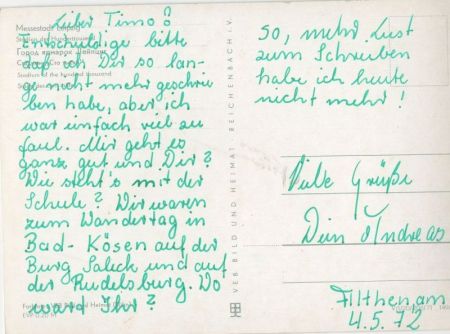 Lieber Timo!
Entschuldige bitte
daß ich Dir so lan-
ge nicht mehr geschrie
ben habe, aber ich
war einfach viel zu
faul. Mir geht es
ganz gut und Dir?
Wie steht's mit der
Schule? Wir waren
zum Wandertag in
Bad-Kösen auf der
Burg Saleck und auf
der Rudelsburg. Wo
ward Ihr?
So, mehr Lust
zum Schreiben
habe ich heute
nicht mehr!
Viele Grüße
Dein Andreas
4.5.72
Messestadt Leipzig
Stadion der Hunderttausend
Stadium of the hundred thousand
VEB BILD UND HEIMAT REICHENBACH i. V.